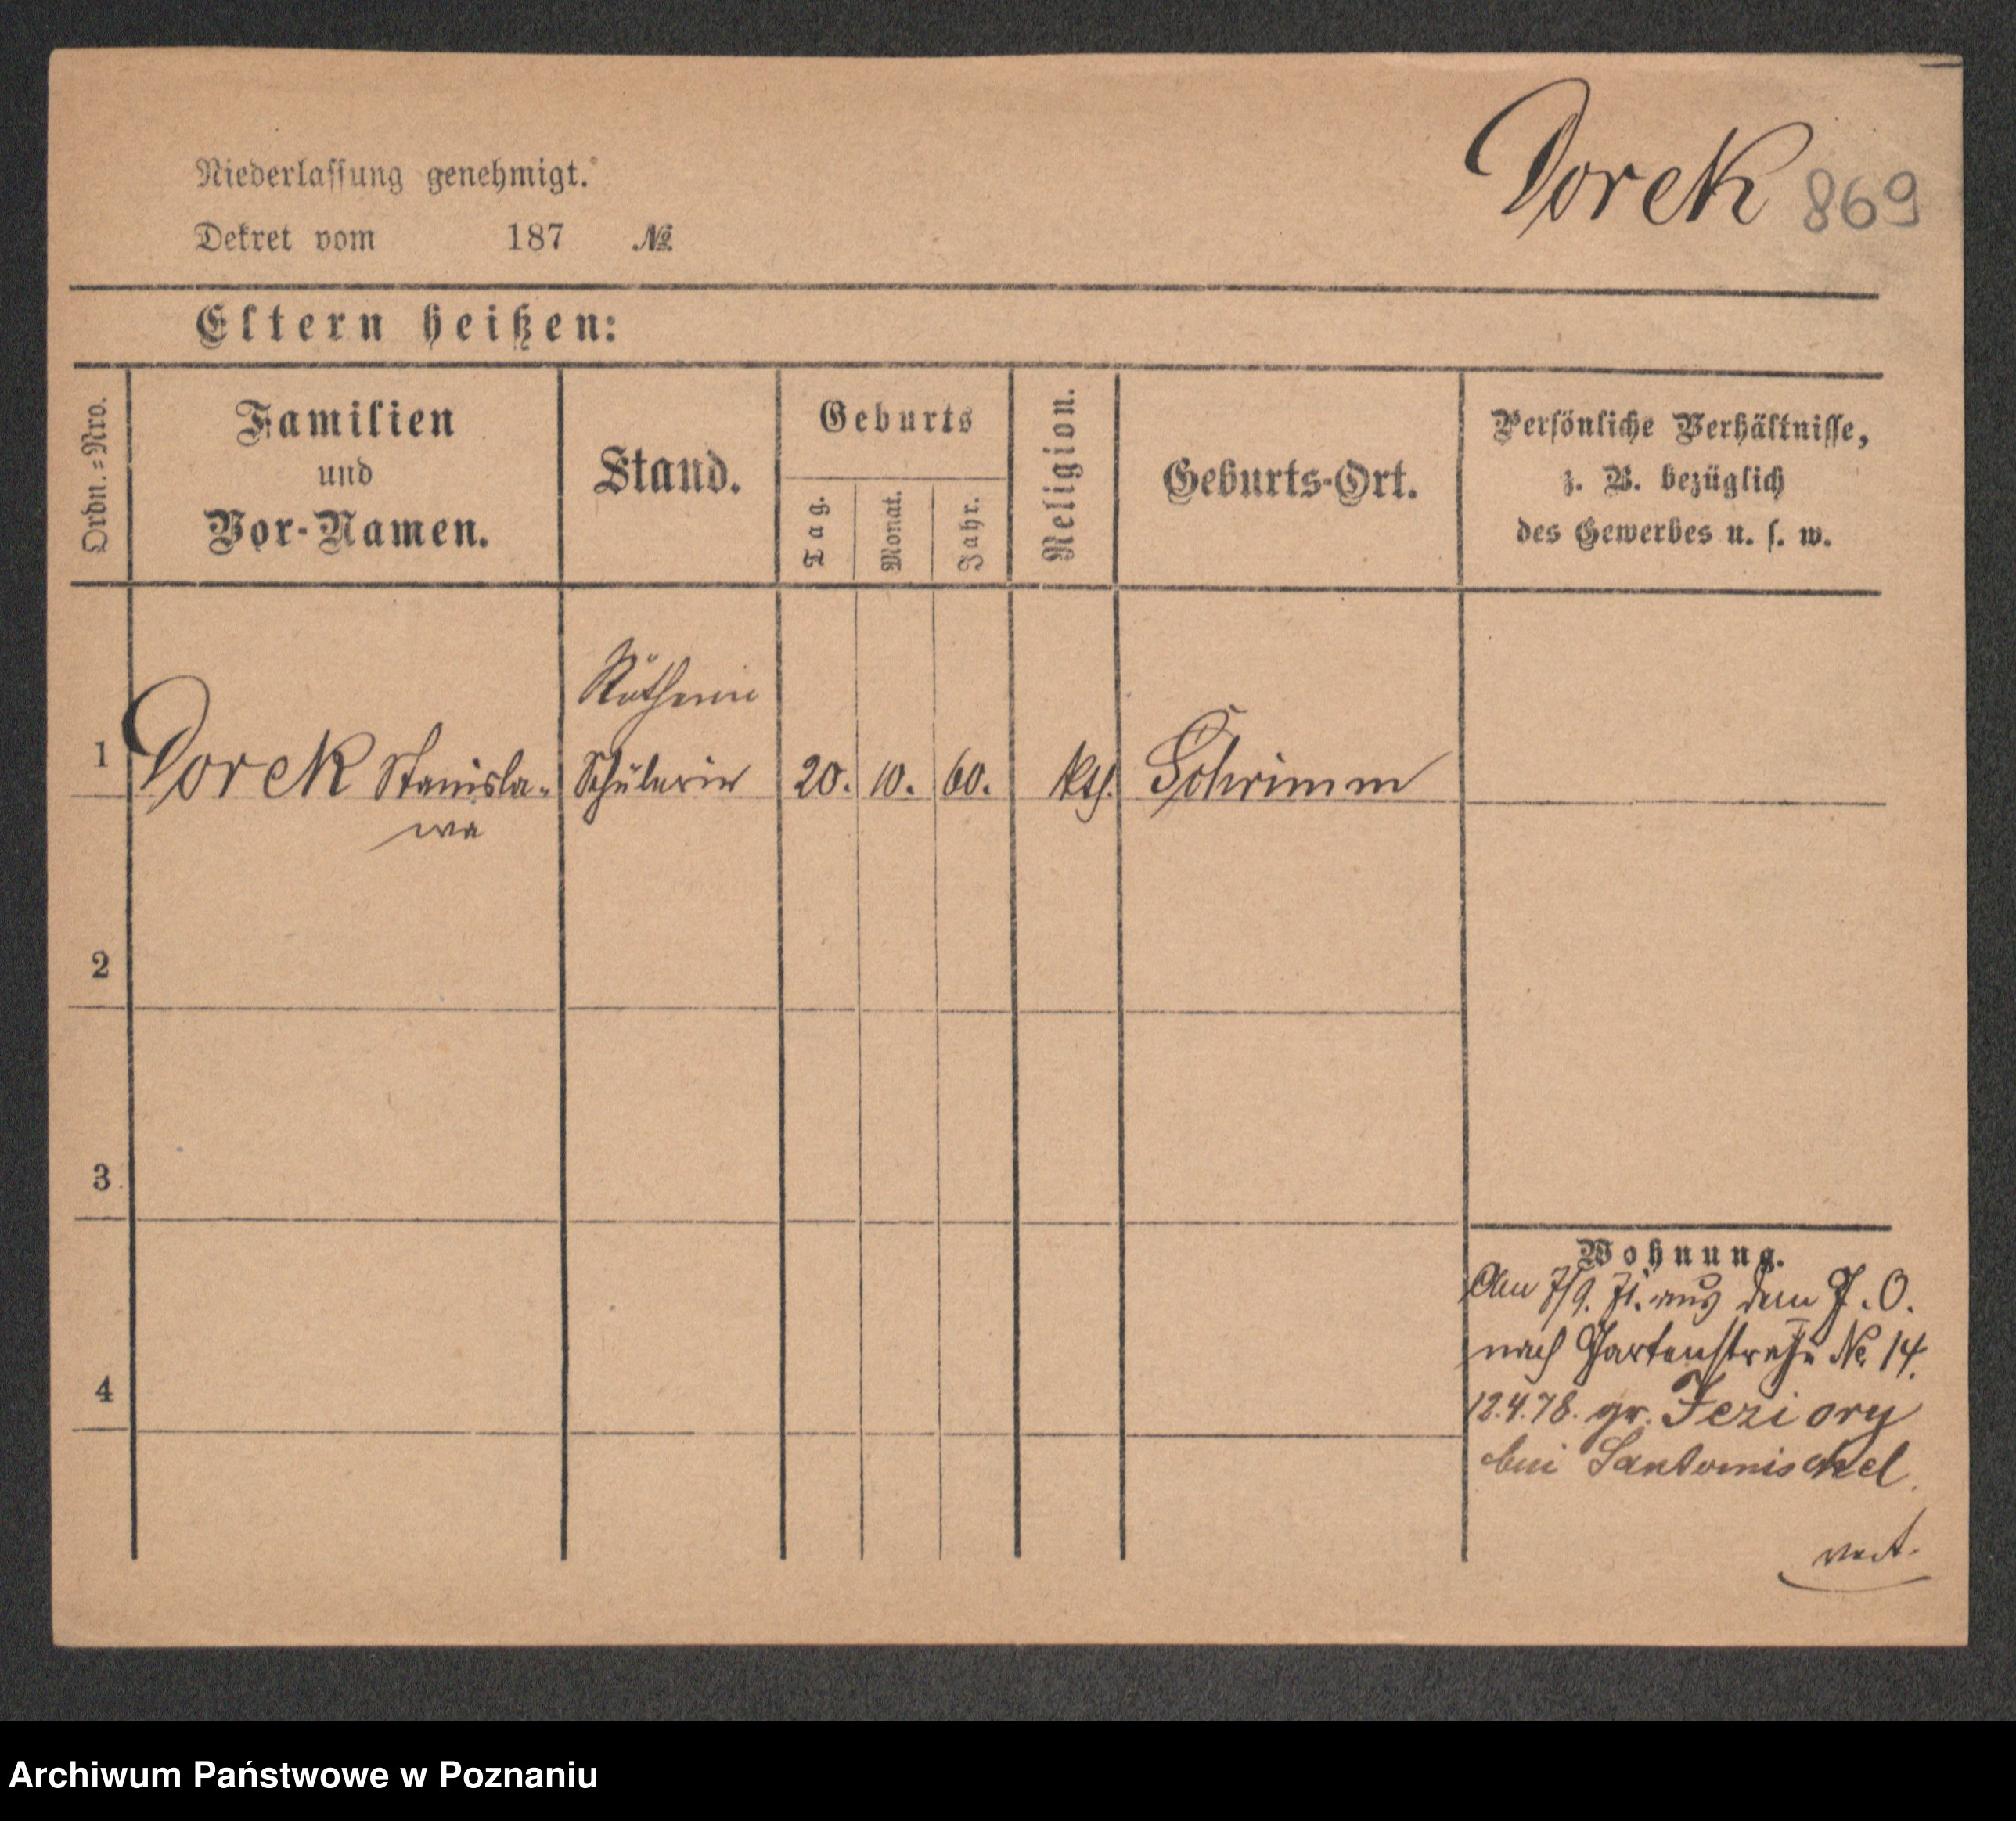 Dorek 869
Niederlassung genehmigt.
Dekret vom 187 №
Eltern heißen:
Ordn.=Nro.
Familien
und
Vor-Namen.
Stand.
Geburts
Tag.
Monat.
Jahr.
Religion.
Geburts-Ort.
Persönliche Verhältnisse,
z. B. bezüglich
des Gewerbes u. s. w.
1 Dorek Stanisla- Schülerin 20. 10. 60. kth. Schrimm
wa
2
3
4
Wohnung.
Am 7/9. 71. aus dem J. O.
nach Gartenstraße № 14.
12.4.78. gr. Jeziory
bei Santomischel.